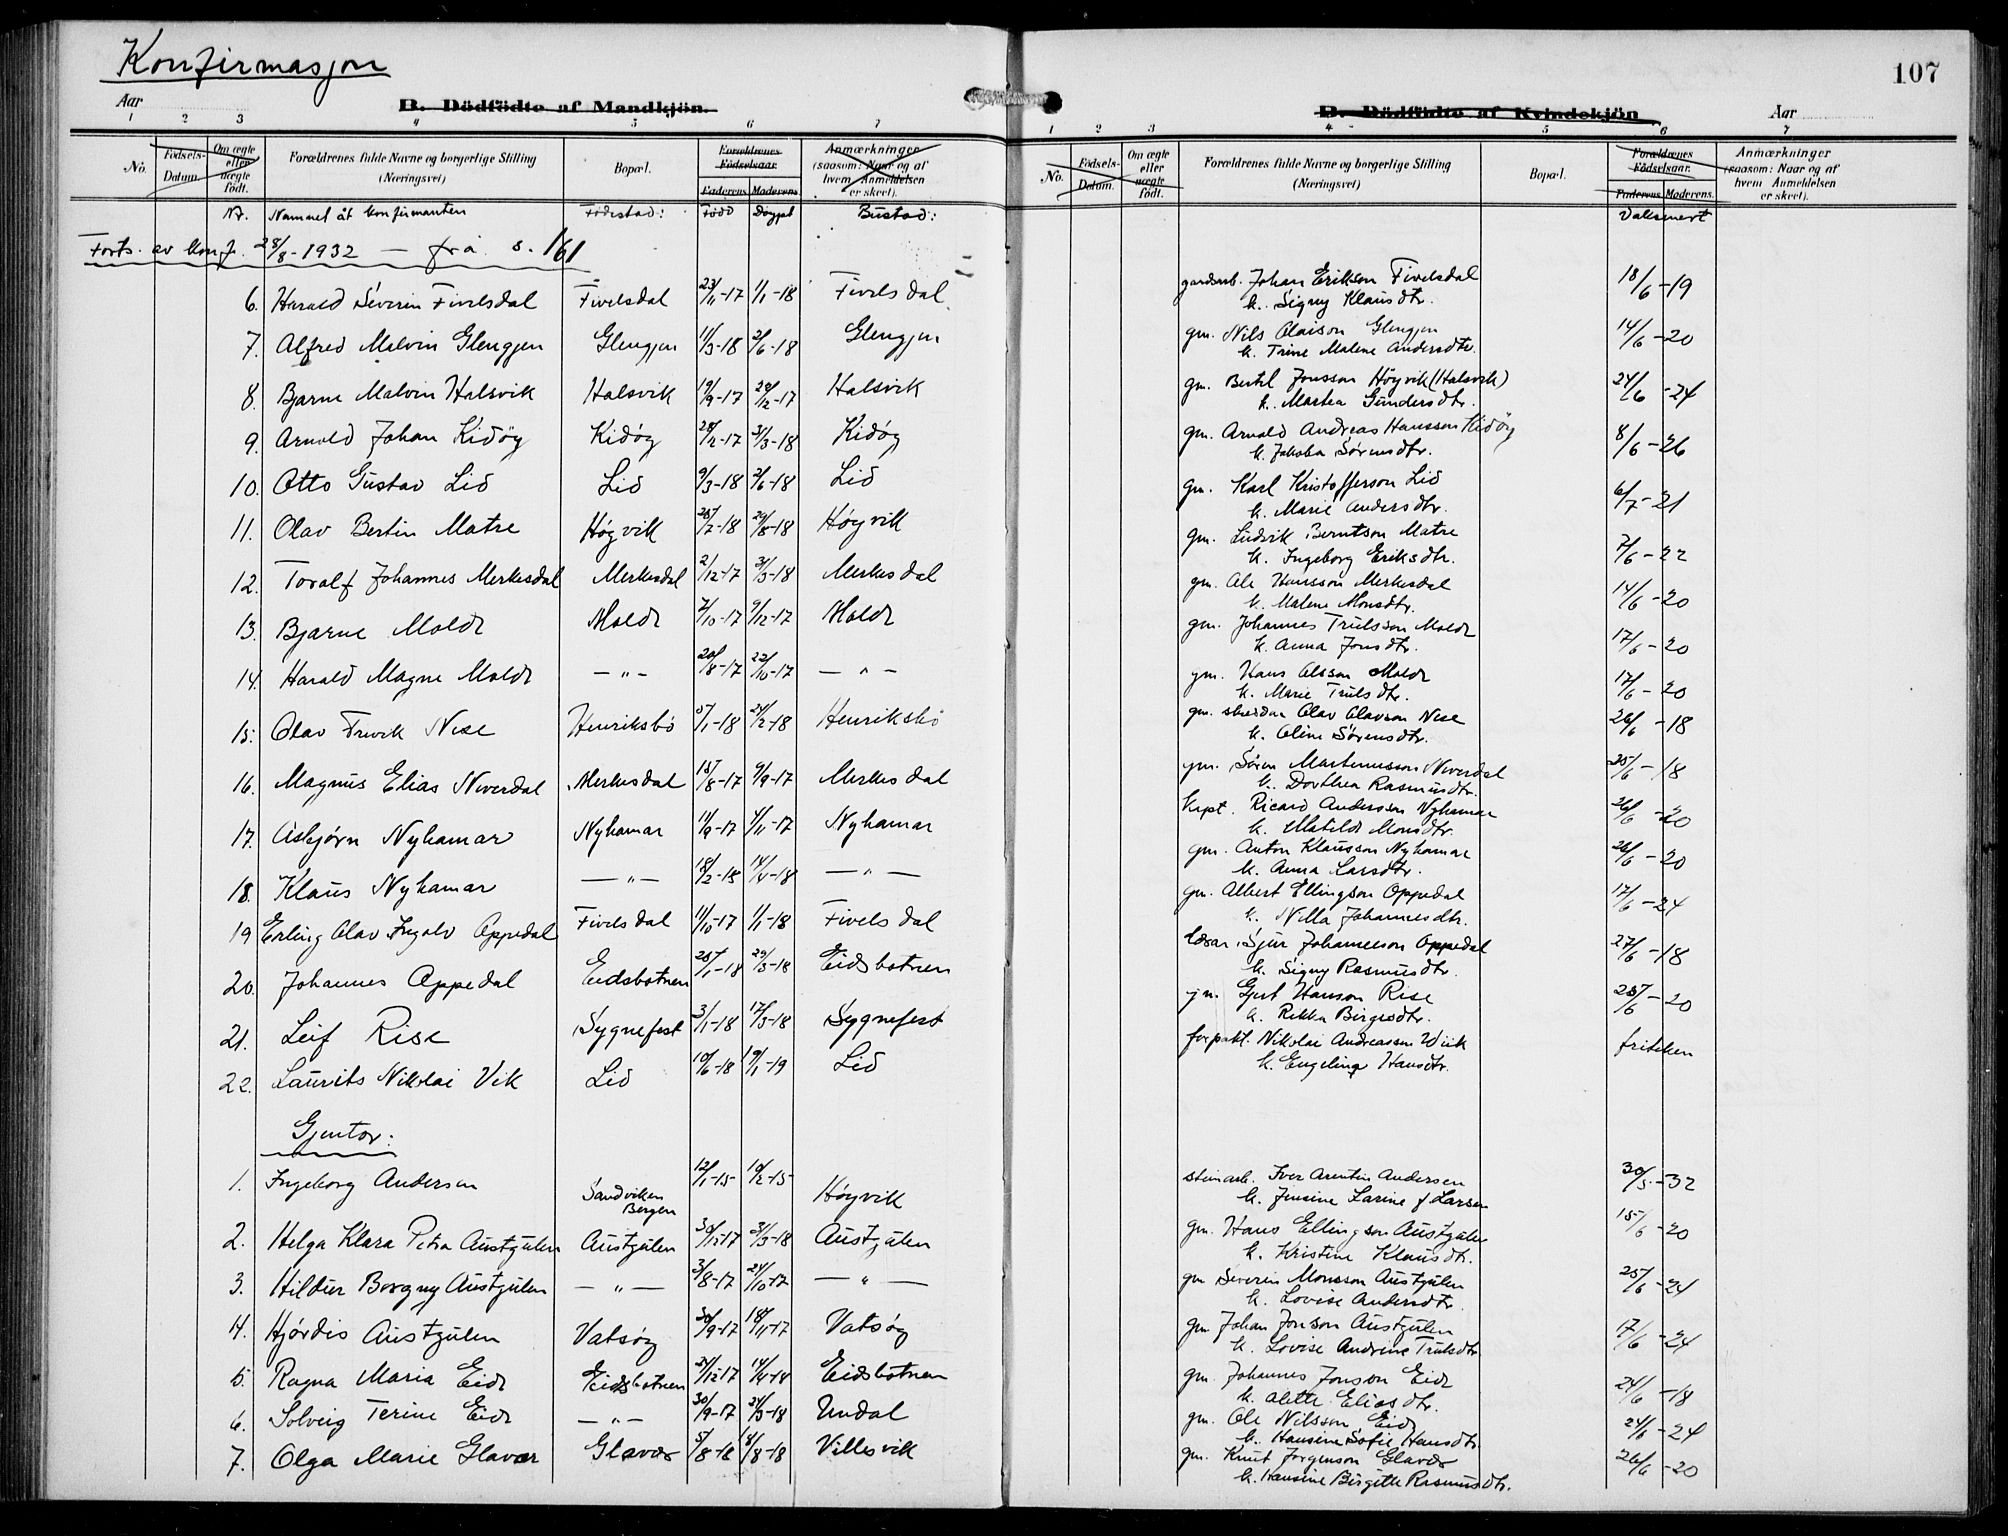 Konfirmasjon
107
Aar
B. Dödfödte af Mandkjön.
B. Dödfödte af Kvindekjön
Aar
1 2 3 4 5 6 7
1 2 3 4 5 6 7
No. Födsels-Datum. Om ægte eller uægte födt. Forældrenes fulde Navne og borgerlige Stilling (Næringsvei) Bopæl. Forældrenes Födselsaar. Faderens Moderens Anmærkninger (saasom: Naar og af hvem Anmeldelsen er skeet).
No. Födsels-Datum. Om ægte eller uægte födt. Forældrenes fulde Navne og borgerlige Stilling (Næringsvei) Bopæl. Forældrenes Födselsaar. Faderens Moderens. Anmærkninger (saasom: Naar og af hvem Anmeldelsen er skeet).
Nr. Namnet åt konfirmanten Födestad: Född Döypt Bustad:
Vaksinert
Forts. av konf. 28/8-1932 — frå s. 161
6. Harald Severin Fivelsdal Fivelsdal 23/11-17 1/1-18 Fivelsdal
gardarb. Johan Erikson Fivelsdal 18/6-19
k. Signy Klausdtr.
7. Alfred Malvin Glengjen Glengjen 11/3-18 2/6-18 Glengjen
gm. Nils Olaison Glengjen 14/6-20
k. Trine Malene Andersdtr.
8. Bjarne Malvin Halsvik Halsvik 19/9-17 29/12-17 Halsvik
gm. Bertil Jonsson Högvik (Halsvik) 24/6-24
k. Martea Gundersdtr.
9. Arnold Johan Kidöy Kidöy 28/12-17 31/3-18 Kidöy
gm. Arnold Andreas Hansson Kidöy 8/6-26
k. Jakoba Sörensdtr.
10. Otto Gustav Lid Lid 9/3-18 2/6-18 Lid
gm. Karl Kristofferson Lid 6/7-21
k. Marie Andersdtr.
11. Olav Bertin Matre Högvik 28/7-18 29/8-18 Höyvik
gm. Ludvik Berntson Matre 7/6-22
k. Ingeborg Eriksdtr.
12. Toralf Johannes Merkesdal Merkesdal 2/12-17 31/3-18 Merkesdal
gm. Ole Hansson Merkesdal 14/6-20
k. Malene Monsdtr.
13. Bjarne Molde Molde 7/10-17 9/12-17 Molde
gm. Johannes Trulsson Molde 17/6-20
k. Anna Jonsdtr.
14. Harald Magne Molde — " — 20/8-17 22/10-17 — " —
gm. Hans Olsson Molde 17/6-20
k. Marie Trulsdtr.
15. Olav Frevik Nese Henriksbö 5/1-18 24/2-18 Henriksbö
gm. skreddar Olav Olavson Nese 26/6-18
k. Oline Sörensdtr.
16. Magnus Elias Niverdal Merkesdal 15/8-17 9/9-17 Merkesdal
gm. Sören Martinusson Niverdal 25/6-18
k. Dorthea Rasmusdtr.
17. Asbjörn Nyhamar Nyhamar 11/9-17 4/11-17 Nyhamar
kapt. Ricard Andersson Nyhamar 26/6-20
k. Matilde Monsdtr.
18. Klaus Nyhamar — " — 18/2-18 14/4-18 — " —
gm. Anton Klausson Nyhamar 26/6-20
k. Anna Larsdtr.
19 Erling Olav Ingolv Oppedal Fivelsdal 11/10-17 1/1-18 Fivelsdal
gm. Albert Ellingson Oppedal 17/6-24
k. Nilla Johannesdtr.
20. Johannes Oppedal Eidsbotnen 28/1-18 29/3-18 Eidsbotnen
lærar Sjur Johanneson Oppedal 27/6-18
k. Signy Rasmusdtr.
21. Leif Rise Sygnefest 3/1-18 17/3-18 Sygnefest
gm. Gjert Hanson Rise 28/6-20
k. Rikka Birgesdtr.
22. Laurits Nikolai Vik Lid 10/6-18 19/1-19 Lid
forpakt. Nikolai Andreasson Wiik friteken
k. Engeline Hansdtr.
Gjentor:
1. Ingeborg Andersen Sandviken Bergen 12/1-15 10/2-15 Höyvik
steinarb. Iver Arentin Andersen 30/5-32
k. Jensine Larine f. Larsen
2. Helga Klara Petra Austgulen Austgulen 30/12-17 31/3-18 Austgulen
gm. Hans Ellingson Austgulen 15/6-20
k. Kristine Klausdtr.
3. Hildur Borgny Austgulen — " — 3/8-17 24/10-17 — " —
gm Severin Monsson Austgulen 25/6-24
k. Lovise Andersdtr.
4. Hjördis Austgulen Vatsöy 30/9-17 18/11-17 Vatsöy
gm Johan Jonson Austgulen 17/6-24
k. Lovise Andrine Trulsdtr
5. Ragna Maria Eide Eidsbotnen 24/12-17 14/4-18 Eidsbotnen
gm. Johannes Jonson Eide 24/6-18
k. Alette Eliasdtr.
6. Solveig Terine Eide — " — 30/9-17 24/3-18 Undal
gm. Ole Nilsson Eide 24/6-24
k. Hansine Sofie Hansdtr.
7. Olga Marie Glavær Glavær 5/8-18 18/8-18 Villesvik
gm. Knut Jorgenson Glavær 26/6-20
k. Hansine Birgitte Rasmusdtr.